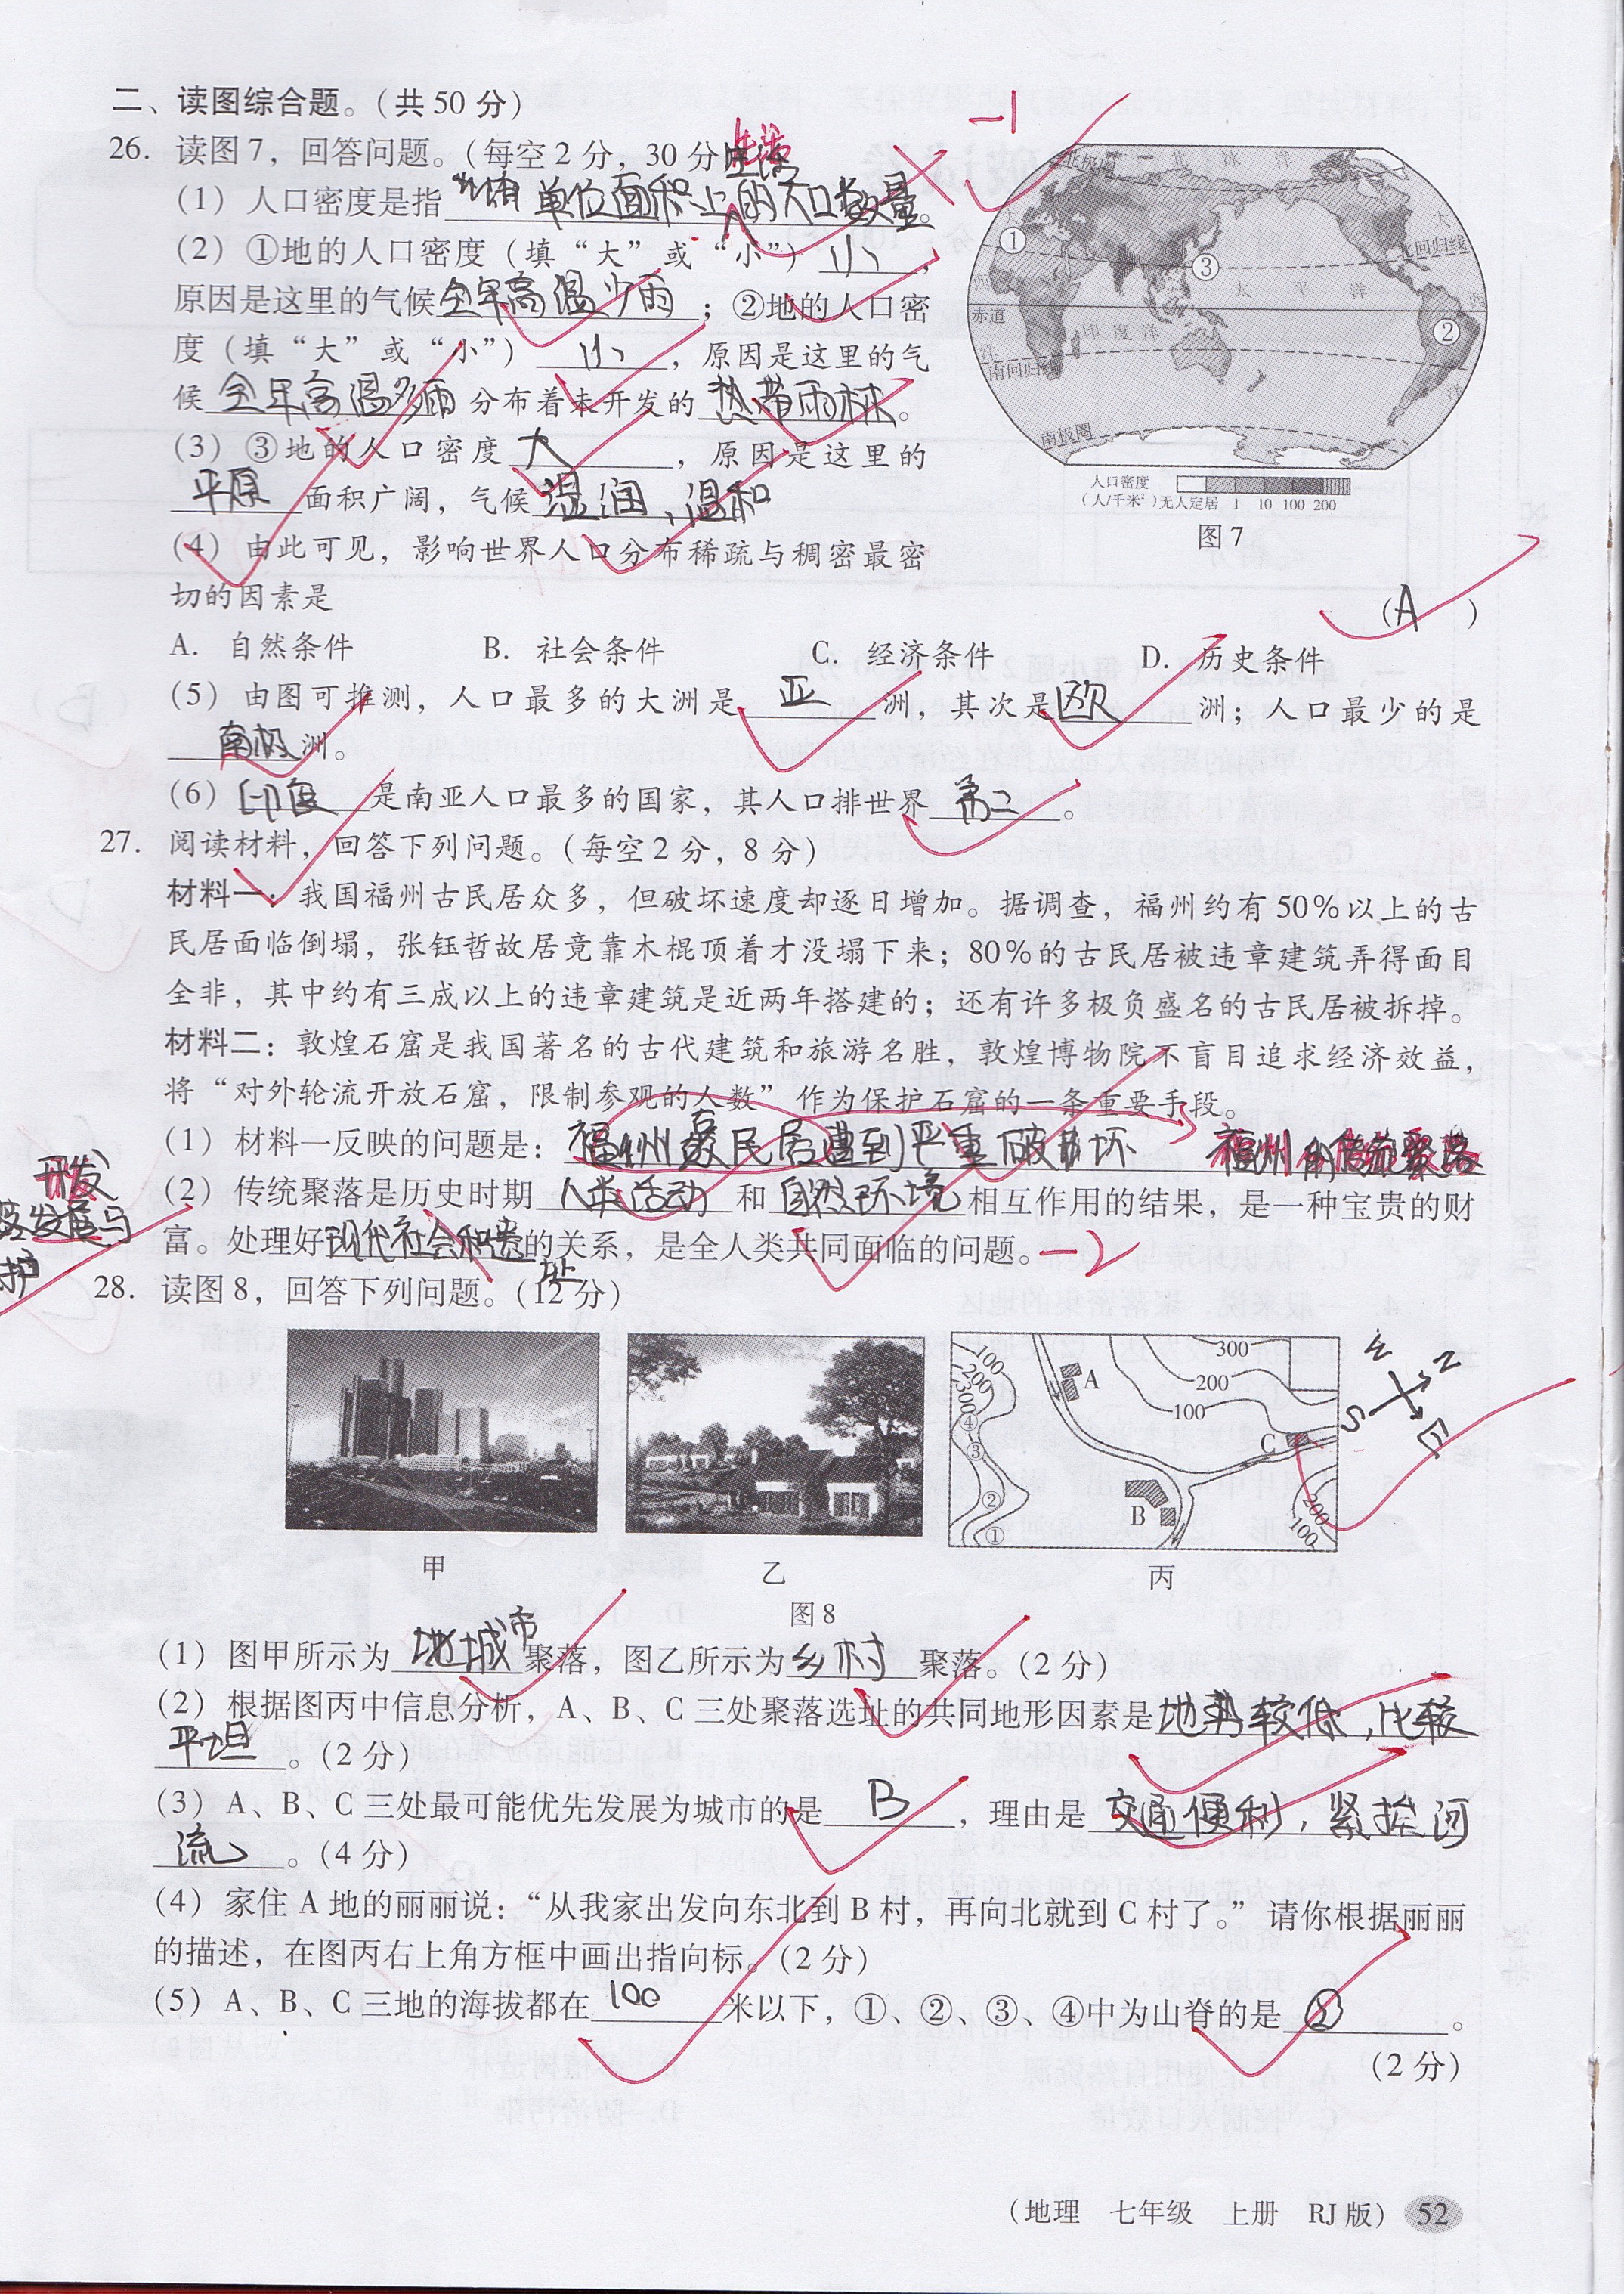 二、读图综合题。(共 50 分)
26. 读图 7，回答问题。(每空 2 分，30 分)
生活
-1
(1) 人口密度是指 单位面积上的人口数量。
(2) ①地的人口密度(填“大”或“小”) 小，
原因是这里的气候全年高温少雨；②地的人口密
度(填“大”或“小”) 小，原因是这里的气
候全年高温多雨分布着未开发的热带雨林。
(3) ③地的人口密度大，原因是这里的
平原面积广阔，气候湿润、温和
(4) 由此可见，影响世界人口分布稀疏与稠密最密
切的因素是
(A)
北极圈 北冰洋
大西洋 ① ③ 太平洋 北回归线 大西洋
赤道 印度洋 ②
南回归线
南极圈
人口密度
(人/千米²) 无人定居 1 10 100 200
图 7
A. 自然条件 B. 社会条件 C. 经济条件 D. 历史条件
(5) 由图可推测，人口最多的大洲是亚洲，其次是欧洲；人口最少的是
南极洲。
(6) 印度是南亚人口最多的国家，其人口排世界第二。
27. 阅读材料，回答下列问题。(每空 2 分，8 分)
材料一：我国福州古民居众多，但破坏速度却逐日增加。据调查，福州约有 50％以上的古
民居面临倒塌，张钰哲故居竟靠木棍顶着才没塌下来；80％的古民居被违章建筑弄得面目
全非，其中约有三成以上的违章建筑是近两年搭建的；还有许多极负盛名的古民居被拆掉。
材料二：敦煌石窟是我国著名的古代建筑和旅游名胜，敦煌博物院不盲目追求经济效益，
将“对外轮流开放石窟，限制参观的人数”作为保护石窟的一条重要手段。
(1) 材料一反映的问题是：福州古民居遭到严重破坏 福州的传统聚落
(2) 传统聚落是历史时期人类活动和自然环境相互作用的结果，是一种宝贵的财
富。处理好现代社会和遗址的关系，是全人类共同面临的问题。-2
开发
发展与
护
28. 读图 8，回答下列问题。(12 分)
300
200
100
100
200
300
④
③
②
①
A
B
C
200
100
W N
S E
甲 乙 丙
图 8
(1) 图甲所示为城市聚落，图乙所示为乡村聚落。(2 分)
(2) 根据图丙中信息分析，A、B、C 三处聚落选址的共同地形因素是地势较低，比较
平坦。(2 分)
(3) A、B、C 三处最可能优先发展为城市的是B，理由是交通便利，紧挨河
流。(4 分)
(4) 家住 A 地的丽丽说：“从我家出发向东北到 B 村，再向北就到 C 村了。”请你根据丽丽
的描述，在图丙右上角方框中画出指向标。(2 分)
(5) A、B、C 三地的海拔都在100米以下，①、②、③、④中为山脊的是②。
(2 分)
(地理 七年级 上册 RJ 版) 52